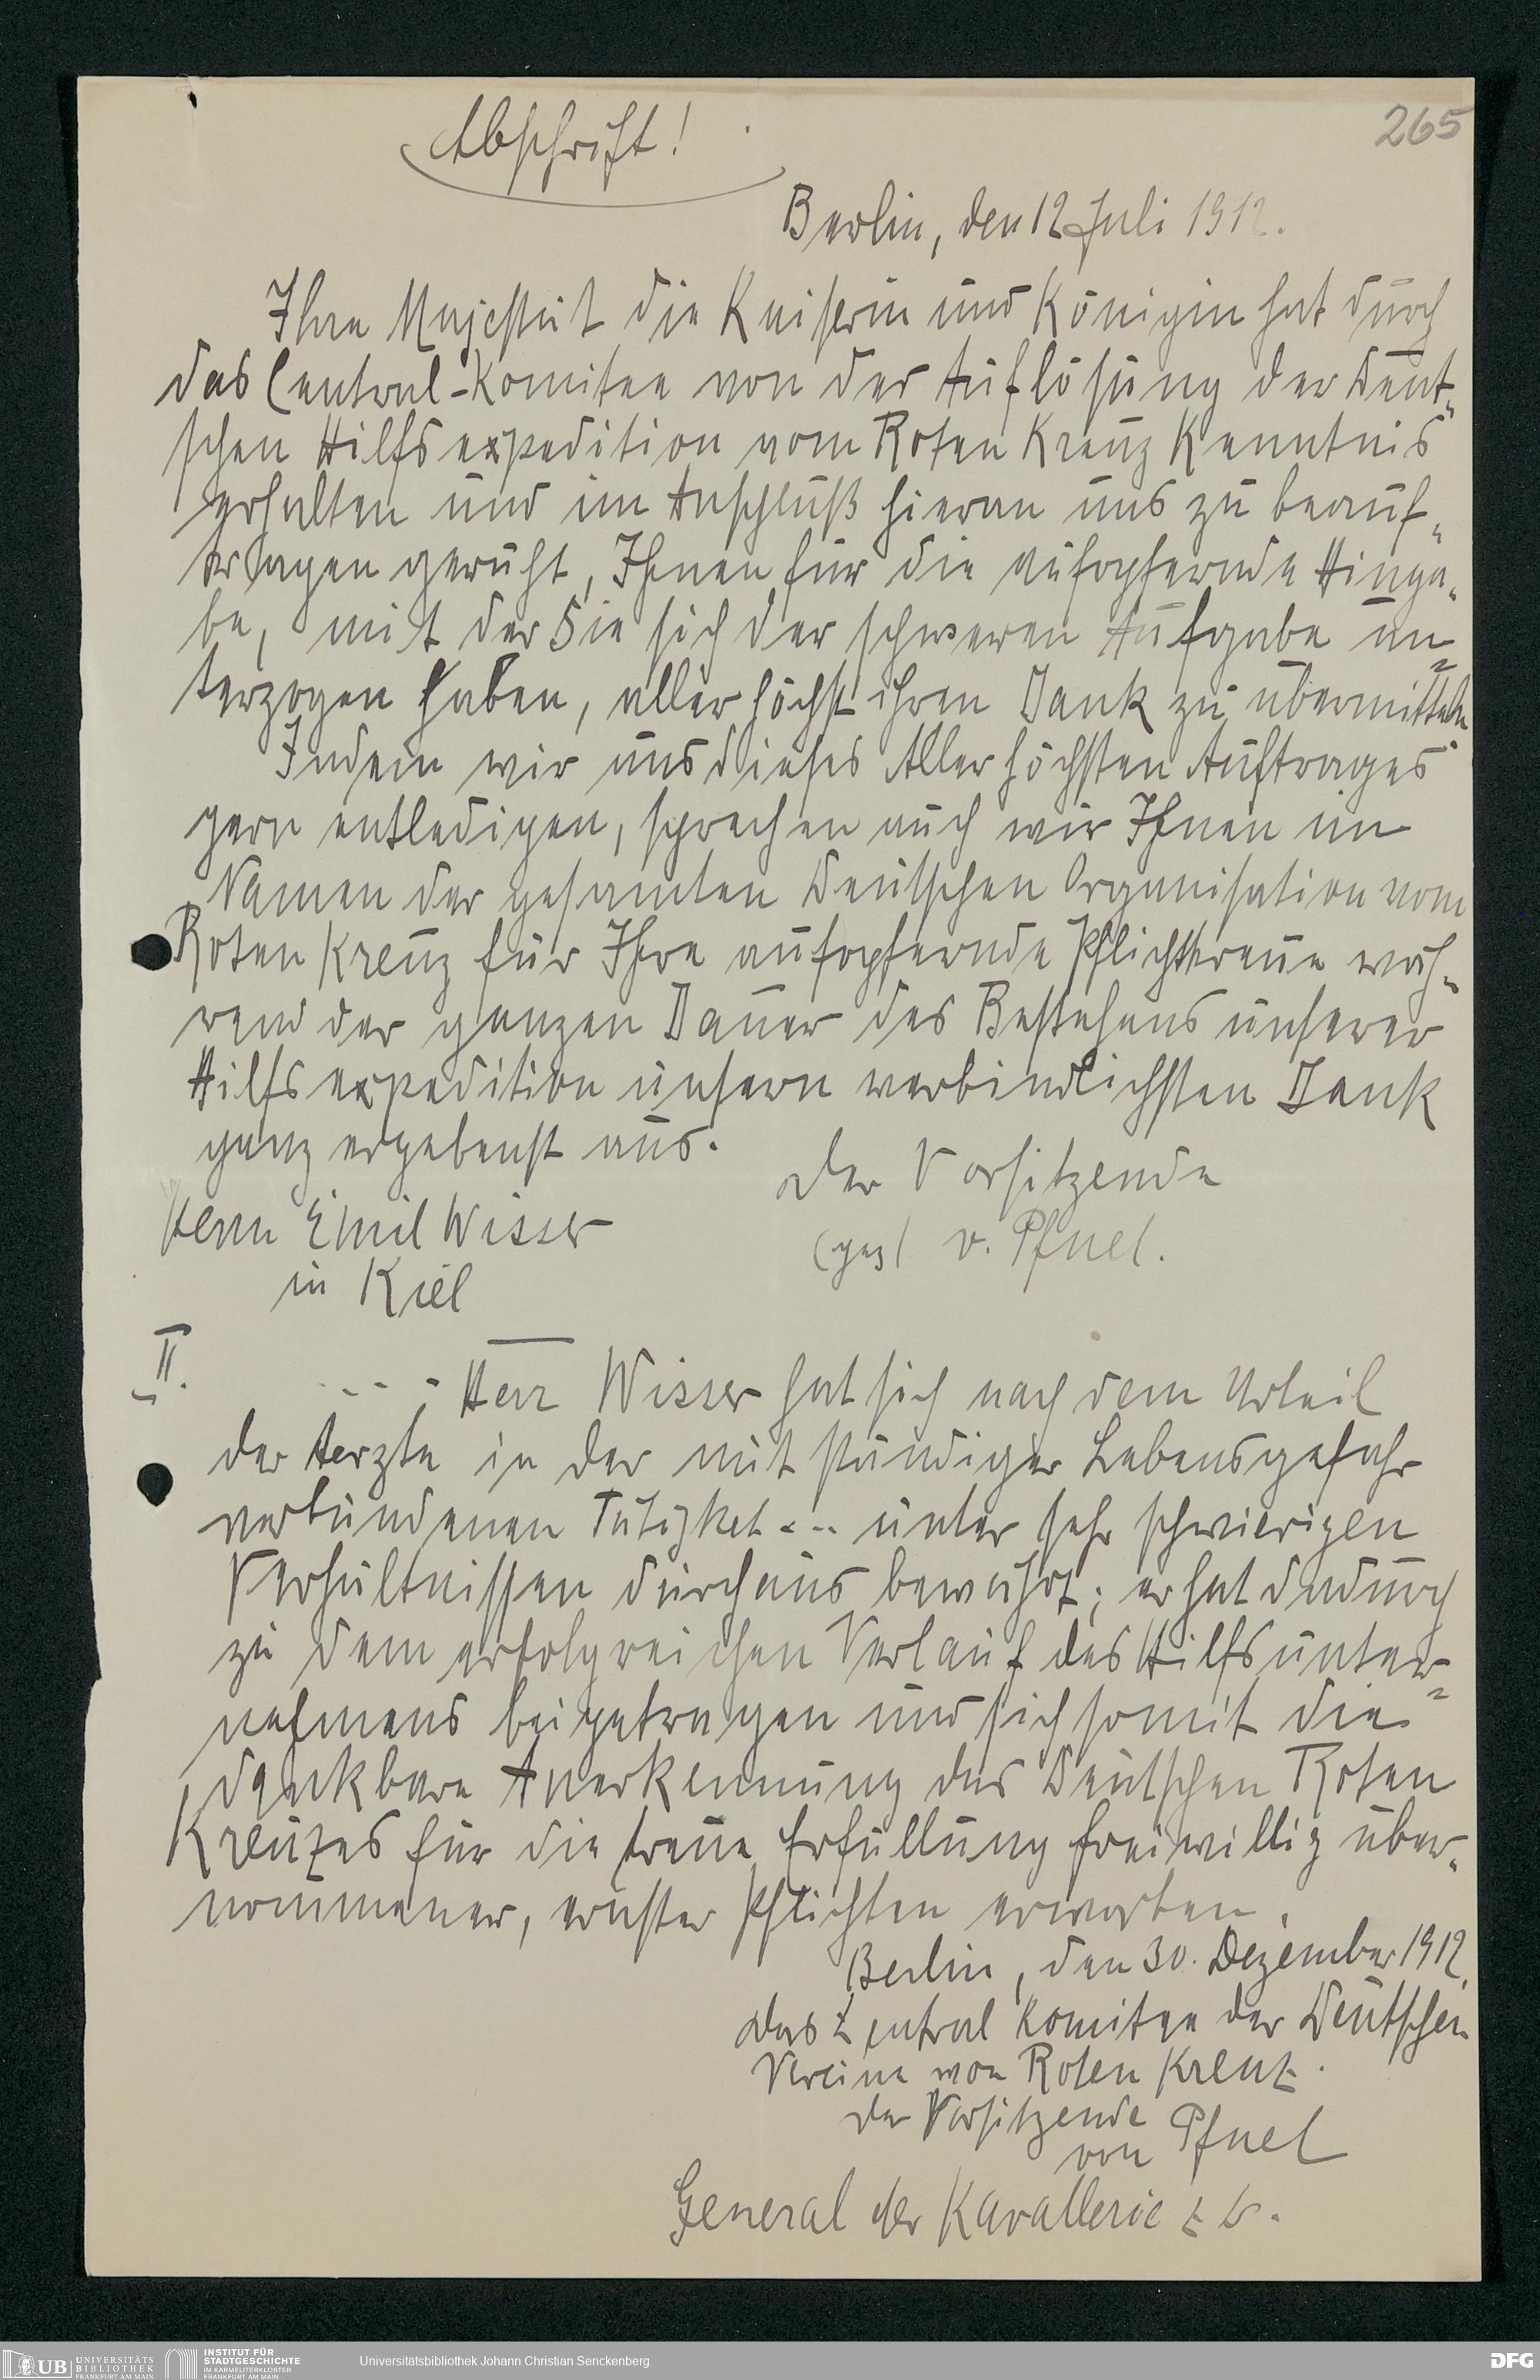 265
Abschrift!
Berlin, den 12 Juli 1912.
Ihre Majestät die Kaiserin und Königin hat durch
das Central-Komitee von der Auflösung der Deut-
schen Hilfsexpedition vom Roten Kreuz Kenntnis
erhalten und im Anschluß hieran uns zu beauf-
tragen geruht, Ihnen für die aufopfernde Hinga-
be, mit der Sie sich der schweren Aufgabe un-
terzogen haben, allerhöchst ihren Dank zu übermitteln
Indem wir uns dieses Allerhöchsten Auftrages
gern entledigen, sprechen auch wir Ihnen im
Namen der gesamten Deutschen Organisation vom
Roten Kreuz für Ihre aufopfernde Pflichttreue wäh-
rend der ganzen Dauer des Bestehens unserer
Hilfsexpedition unsern verbindlichsten Dank
ganz ergebenst aus.
Der Vorsitzende
(gez) v. Pfuel.
Herrn Emil Wisser
in Kiel
II.
- - - - Herr Wisser hat sich nach dem Urteil
der Aerzte in der mit ständiger Lebensgefahr
verbundenen Tätigket - - - unter sehr schwierigen
Verhältnissen durchaus bewährt; er hat dadurch
zu dem erfolgreichen Verlauf des Hilfsunter-
nehmens beigetragen und sich somit die
dankbare Anerkennung des Deutschen Roten
Kreuzes für die treue Erfüllung freiwillig über-
nommener, ernster Pflichten erworben.
Berlin, den 30. Dezember 1912.
Das Zentral Komitee der Deutschen
Vereine vom Roten Kreuz.
Der Vorsitzende
von Pfuel
General der Kavallerie z. D.
UB UNIVERSITÄTS
BIBLIOTHEK
FRANKFURT AM MAIN
INSTITUT FÜR
STADTGESCHICHTE
IM KARMELITERKLOSTER
FRANKFURT AM MAIN
Universitätsbibliothek Johann Christian Senckenberg
DFG